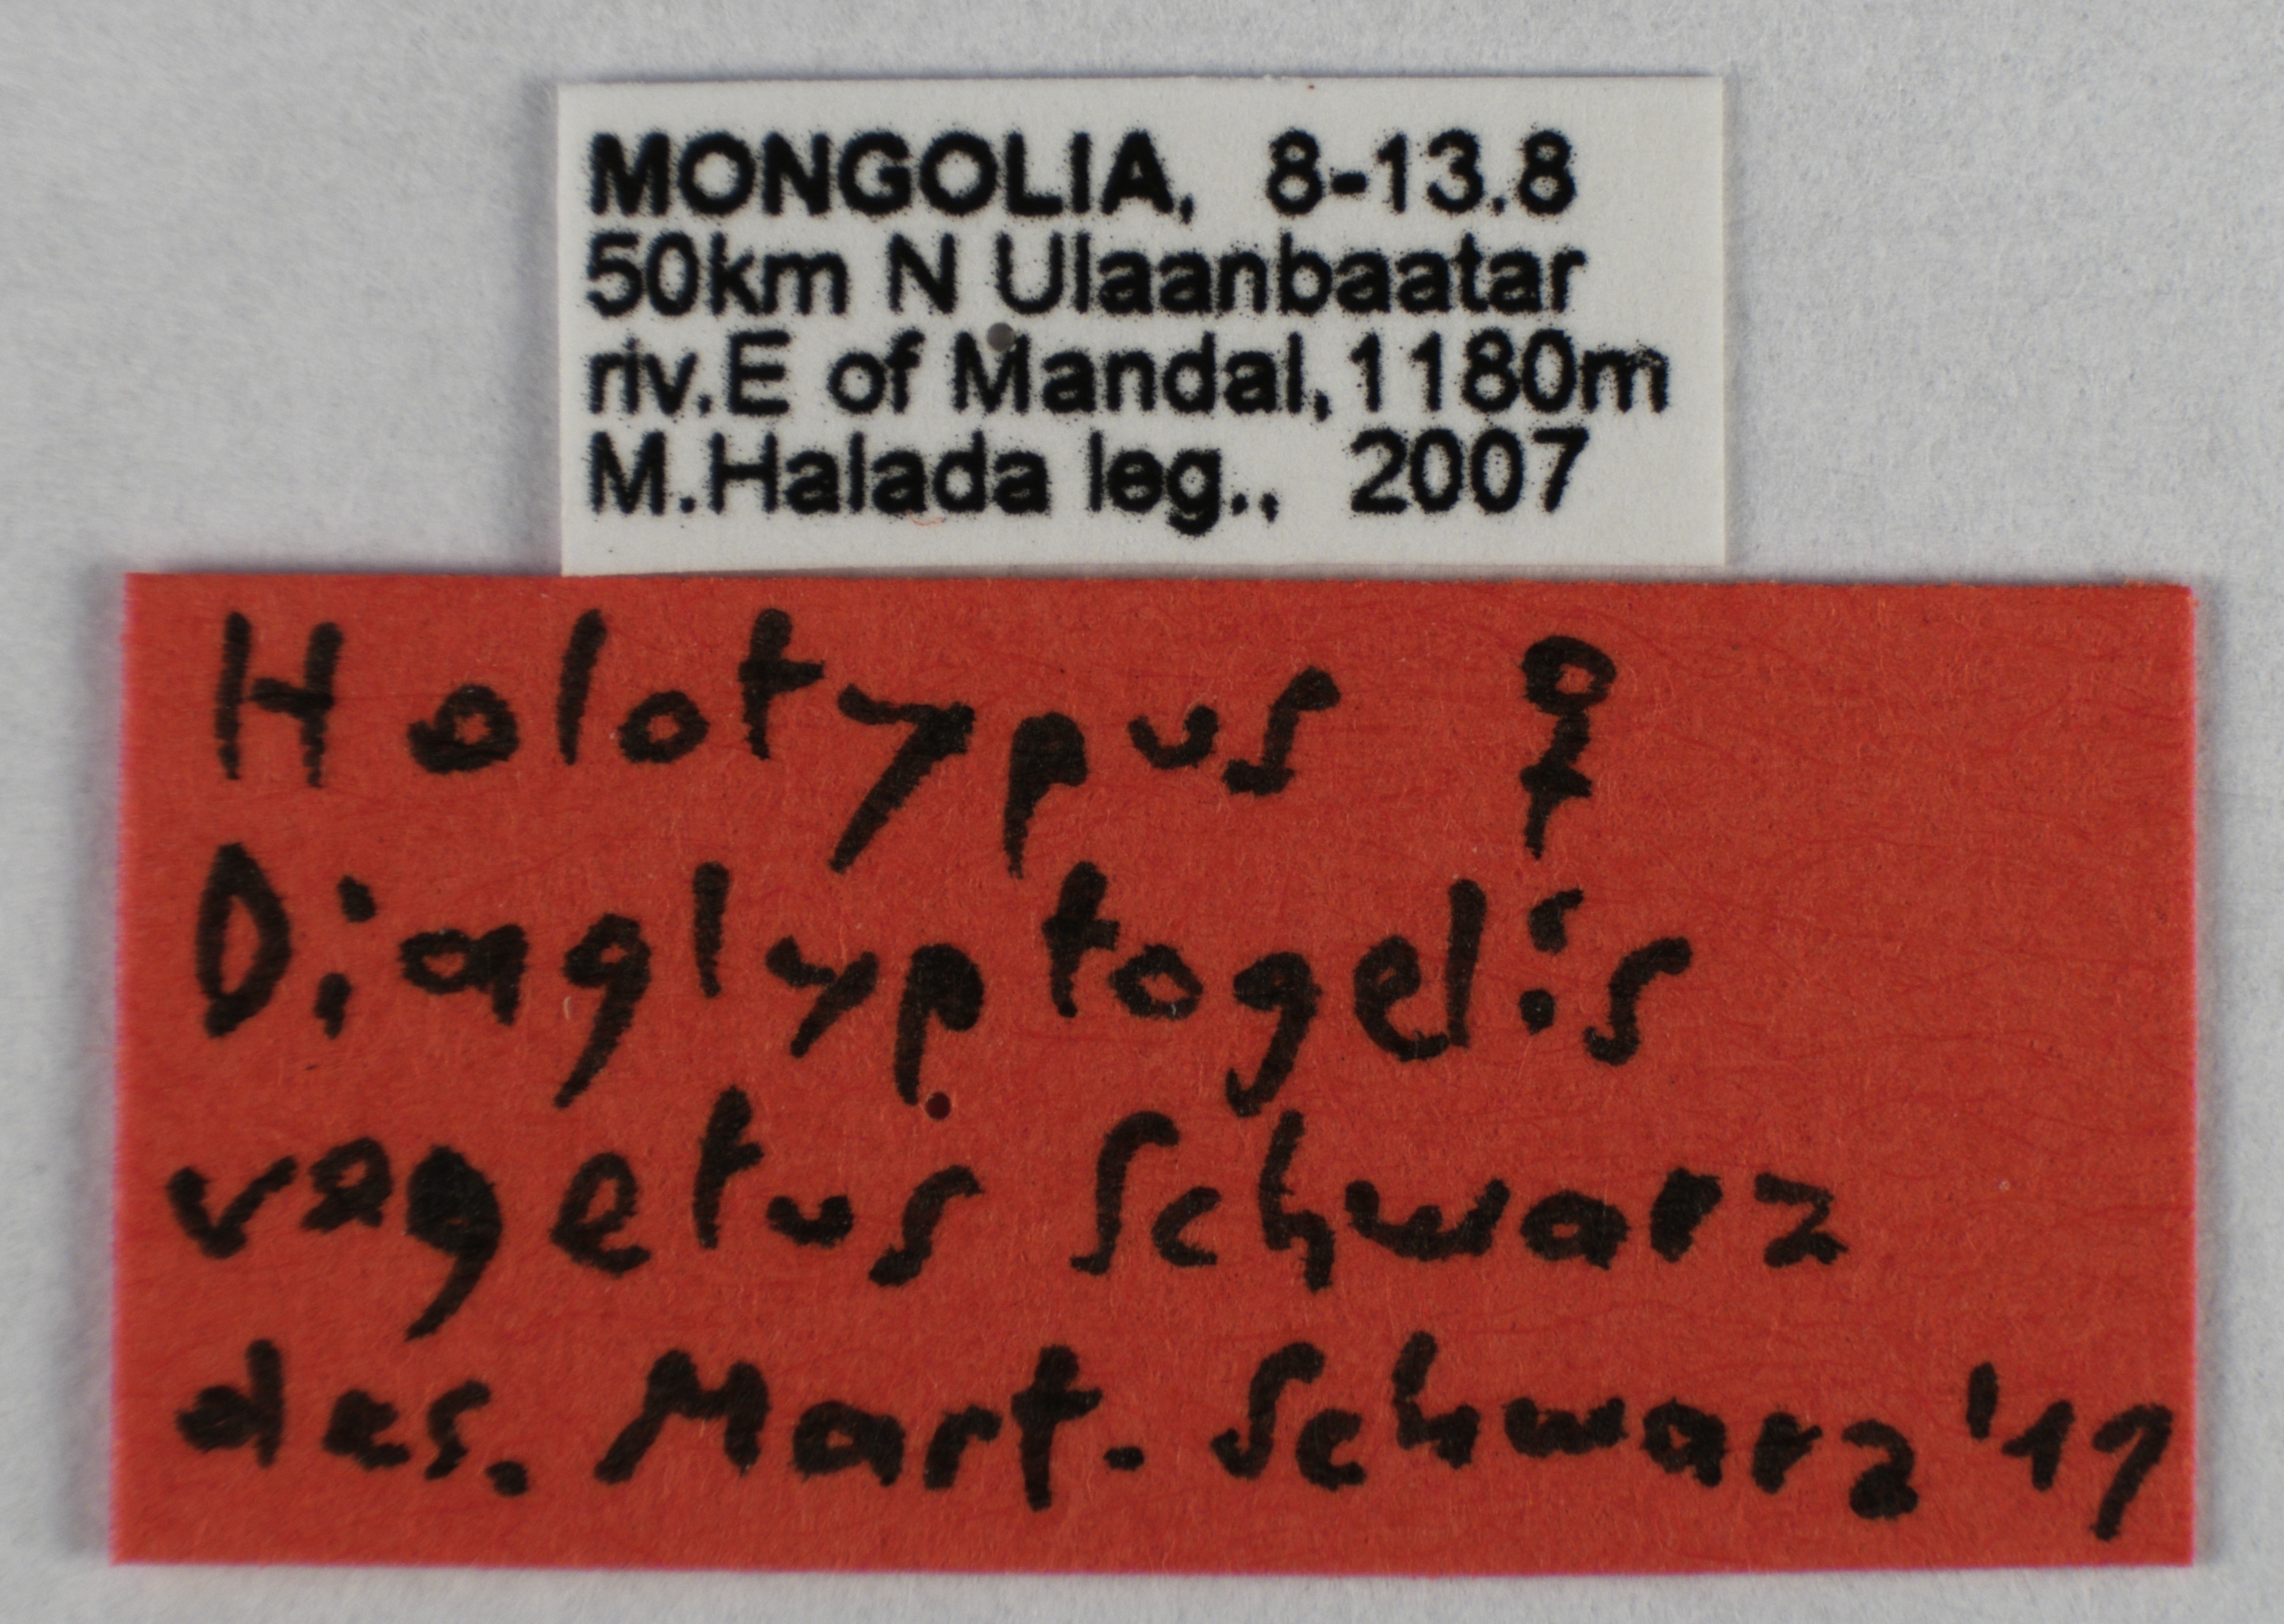 MONGOLIA, 8-13.8
50km N Ulaanbaatar
riv.E of Mandal,1180m
M.Halada leg., 2007
Holotypus ♀
Diaglyptogelis
vegetus Schwarz
des. Mart. Schwarz '19